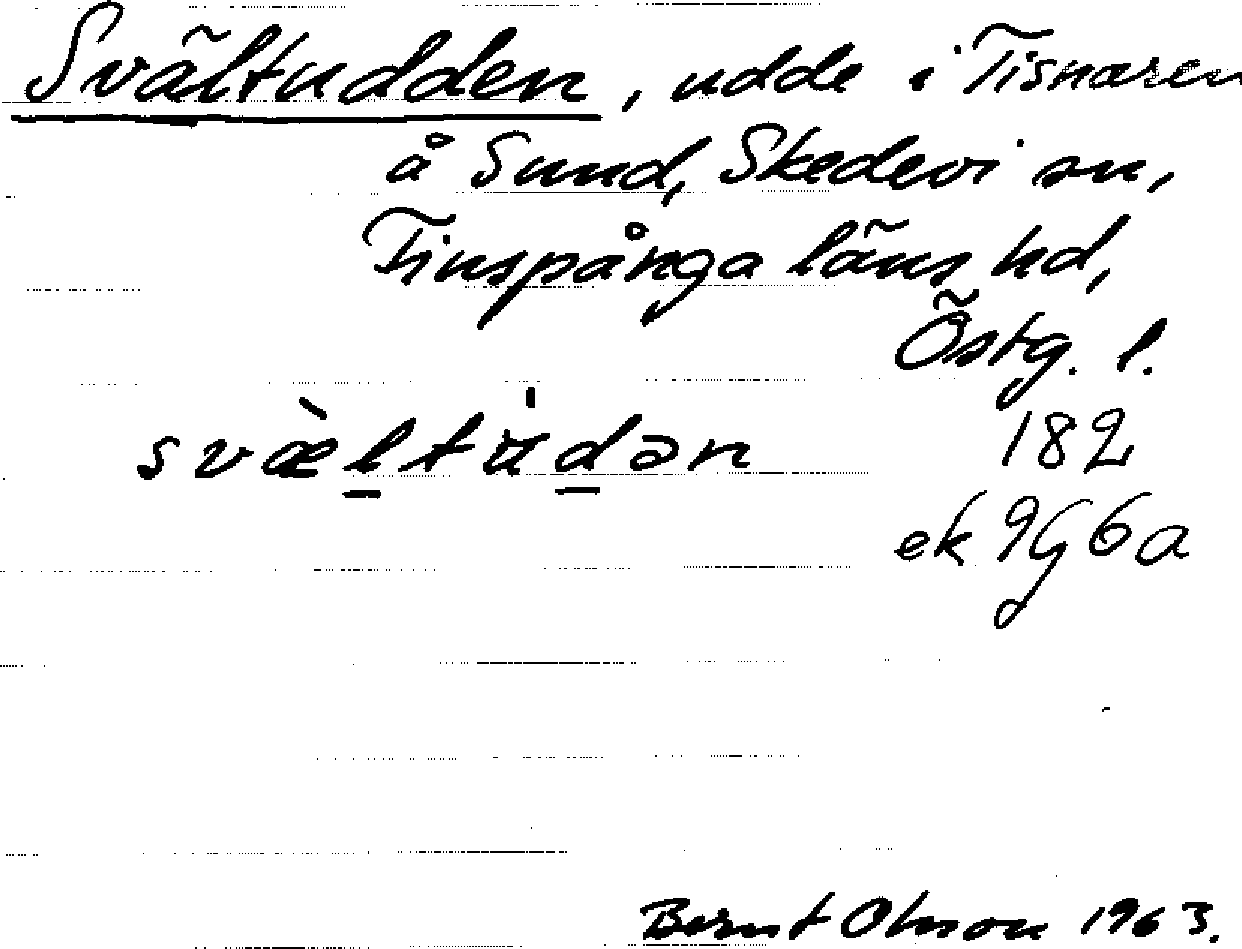 Svältudden, udde i Tisnaren
å Sund, Skedevi sn,
Finspånga läns hd,
Östg. l.
svæ̀ltu̇dən 182
ek 9G6a
Bernt Olsson 1963.